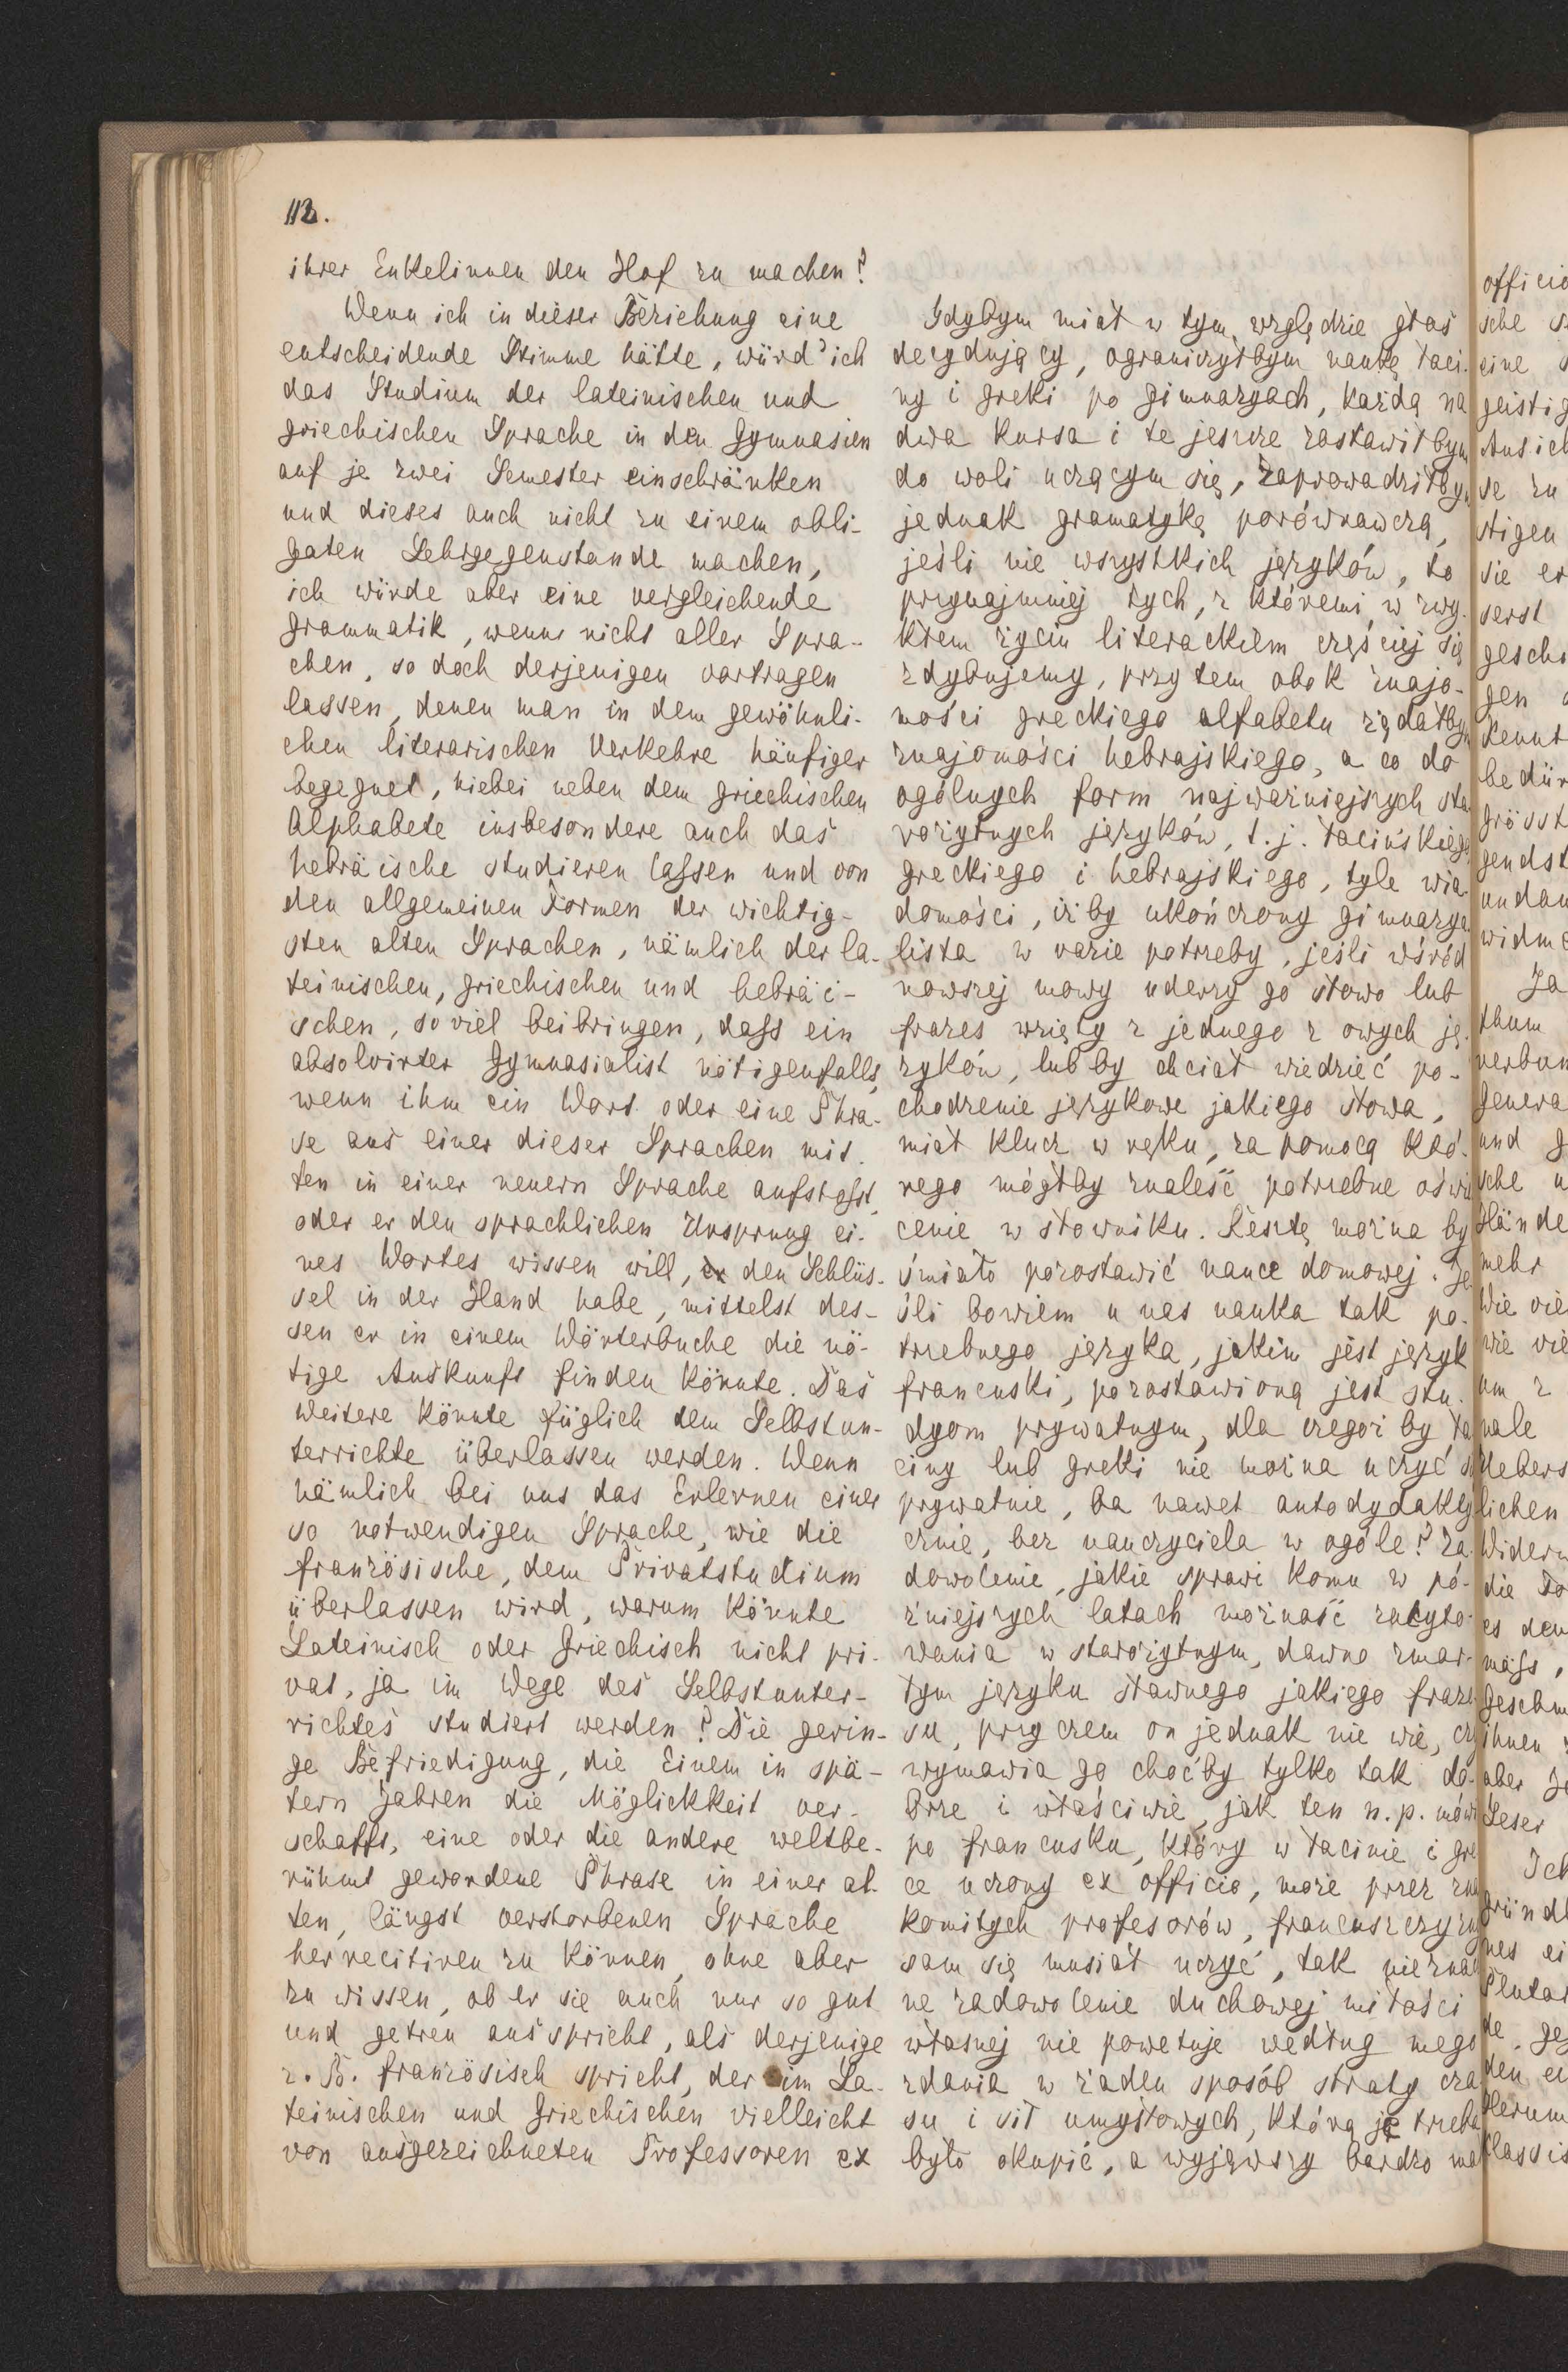 112.
ihrer Enkelinnen den Hof zu machen?
Wenn ich in dieser Beziehung eine
entscheidende Stimme hätte, würd' ich
das Studium der lateinischen und
griechischen Sprache in den Gymnasien
auf je zwei Semester einschränken
und dieses auch nicht zu einem obli-
gaten Lehrgegenstande machen,
ich würde aber eine vergleichende
Grammatik, wenn nicht aller Spra-
chen, so doch derjenigen vortragen
lassen, denen man in dem gewöhnli-
chen literarischen Verkehre häufiger
begegnet, hiebei neben dem griechischen
Alphabete insbesondere auch das
hebräische studieren laſsen und von
den allgemeinen Formen der wichtig-
sten alten Sprachen, nämlich der la-
teinischen, griechischen und hebräi-
schen, soviel beibringen, daſs ein
absolvirter Gymnasialist nötigenfalls,
wenn ihm ein Wort oder eine Phra-
se aus einer dieser Sprachen mit-
ten in einer neuern Sprache aufstoſst,
oder er den sprachlichen Ursprung ei-
nes Wortes wissen will, den Schlüs-
sel in der Hand habe, mittelst des-
sen er in einem Wörterbuche die nö-
tige Auskunft finden könnte. Das
Weitere könnte füglich dem Selbstun-
terrichte überlassen werden. Wenn
nämlich bei uns das Erlernen einer
so notwendigen Sprache, wie die
französische, dem Privatstudium
überlassen wird, warum könnte
Lateinisch oder Griechisch nicht pri-
vat, ja im Wege des Selbstunter-
richtes studiert werden? Die gerin-
ge Befriedigung, die Einem in spä-
tern Jahren die Möglickkeit ver-
schafft, eine oder die andere weltbe-
rühmt gewordene Phrase in einer al-
ten, längst verstorbenen Sprache
herrecitiren zu können, ohne aber
zu wissen, ob er sie auch nur so gut
und getreu ausspricht, als derjenige
z. B. französisch spricht, der im La-
teinischen und Griechischen vielleicht
von ausgezeichneten Professoren ex
Gdybym miał w tym względzie głos
decydujący, ograniczyłbym naukę łaci-
ny i greki po gimnazyach, każdą na
dwa kursa i te jeszcze zostawiłbym
do woli uczącym się, zaprowadziłbym
jednak gramatykę porównawczą,
jeśli nie wszystkich języków, to
przynajmniej tych, z któremi w zwy-
kłem życiu literackiem częściej się
zdybujemy, przytem obok znajo-
mości greckiego alfabetu żądałbym
znajomości hebrajskiego, a co do
ogólnych form najważniejszych sta-
rożytnych języków, t. j. łacińskiego
greckiego i hebrajskiego, tyle wia-
domości, iżby ukończony gimnazya
lista w razie potrzeby, jeśli wśród
nowszej mowy uderzy go słowo lub
frazes wzięty z jednego z owych ję-
zyków, lub by chciał wiedzieć po-
chodzenie językowe jakiego słowa,
miał klucz w ręku, za pomocą któ-
rego mógłby znaleść potrzebne oświe
cenie w słowniku. Resztę można by
śmiało pozostawić nauce domowej. Je-
śli bowiem u nas nauka tak po-
trzebnego języka, jakim jest język
francuski, pozostawioną jest stu-
dyom prywatnym, dla czegoż by ła
ciny lub greki nie można uczyć się
prywatnie, ba nawet autodydakty
cznie, bez nauczyciela w ogóle? Za-
dowolenie, jakie sprawi komu w pó-
źniejszych latach możność zacyto-
wania w starożytnym, dawno zmar-
łym języku sławnego jakiego fraze
su, przyczem on jednak nie wie, czy
wymawia go choćby tylko tak do-
brze i właściwie, jak ten n. p. mówi
po francusku, który w łacinie i gre
ce uczony ex officio, może przez zna
komitych profesorów, francuszczyzny
sam się musiał uczyć, tak nieznacz
ne zadowolenie duchowej miłości
własnej nie powetuje według mego
zdania w żaden sposób straty cza
su i sił umysłowych, którą je trzeba
było okupić, a wyjąwszy bardzo ma
officio
sche
eine
geistig
Ansich
se zu
stigen
sie er
serst
gesch
gen
kennt
bedür
grösst
gendst
undan
widme
Ja
thum
verbun
Genera
und g
sche u
Hände
mehr
Wie vie
wie vie
um z
nale
Uebers
lichen
Widerw
die To
es den
maſs,
Geschm
ihnen
aber Je
Leser
Ich
gründl
nes ei
Plutar
de. Geg
den ei
Classis